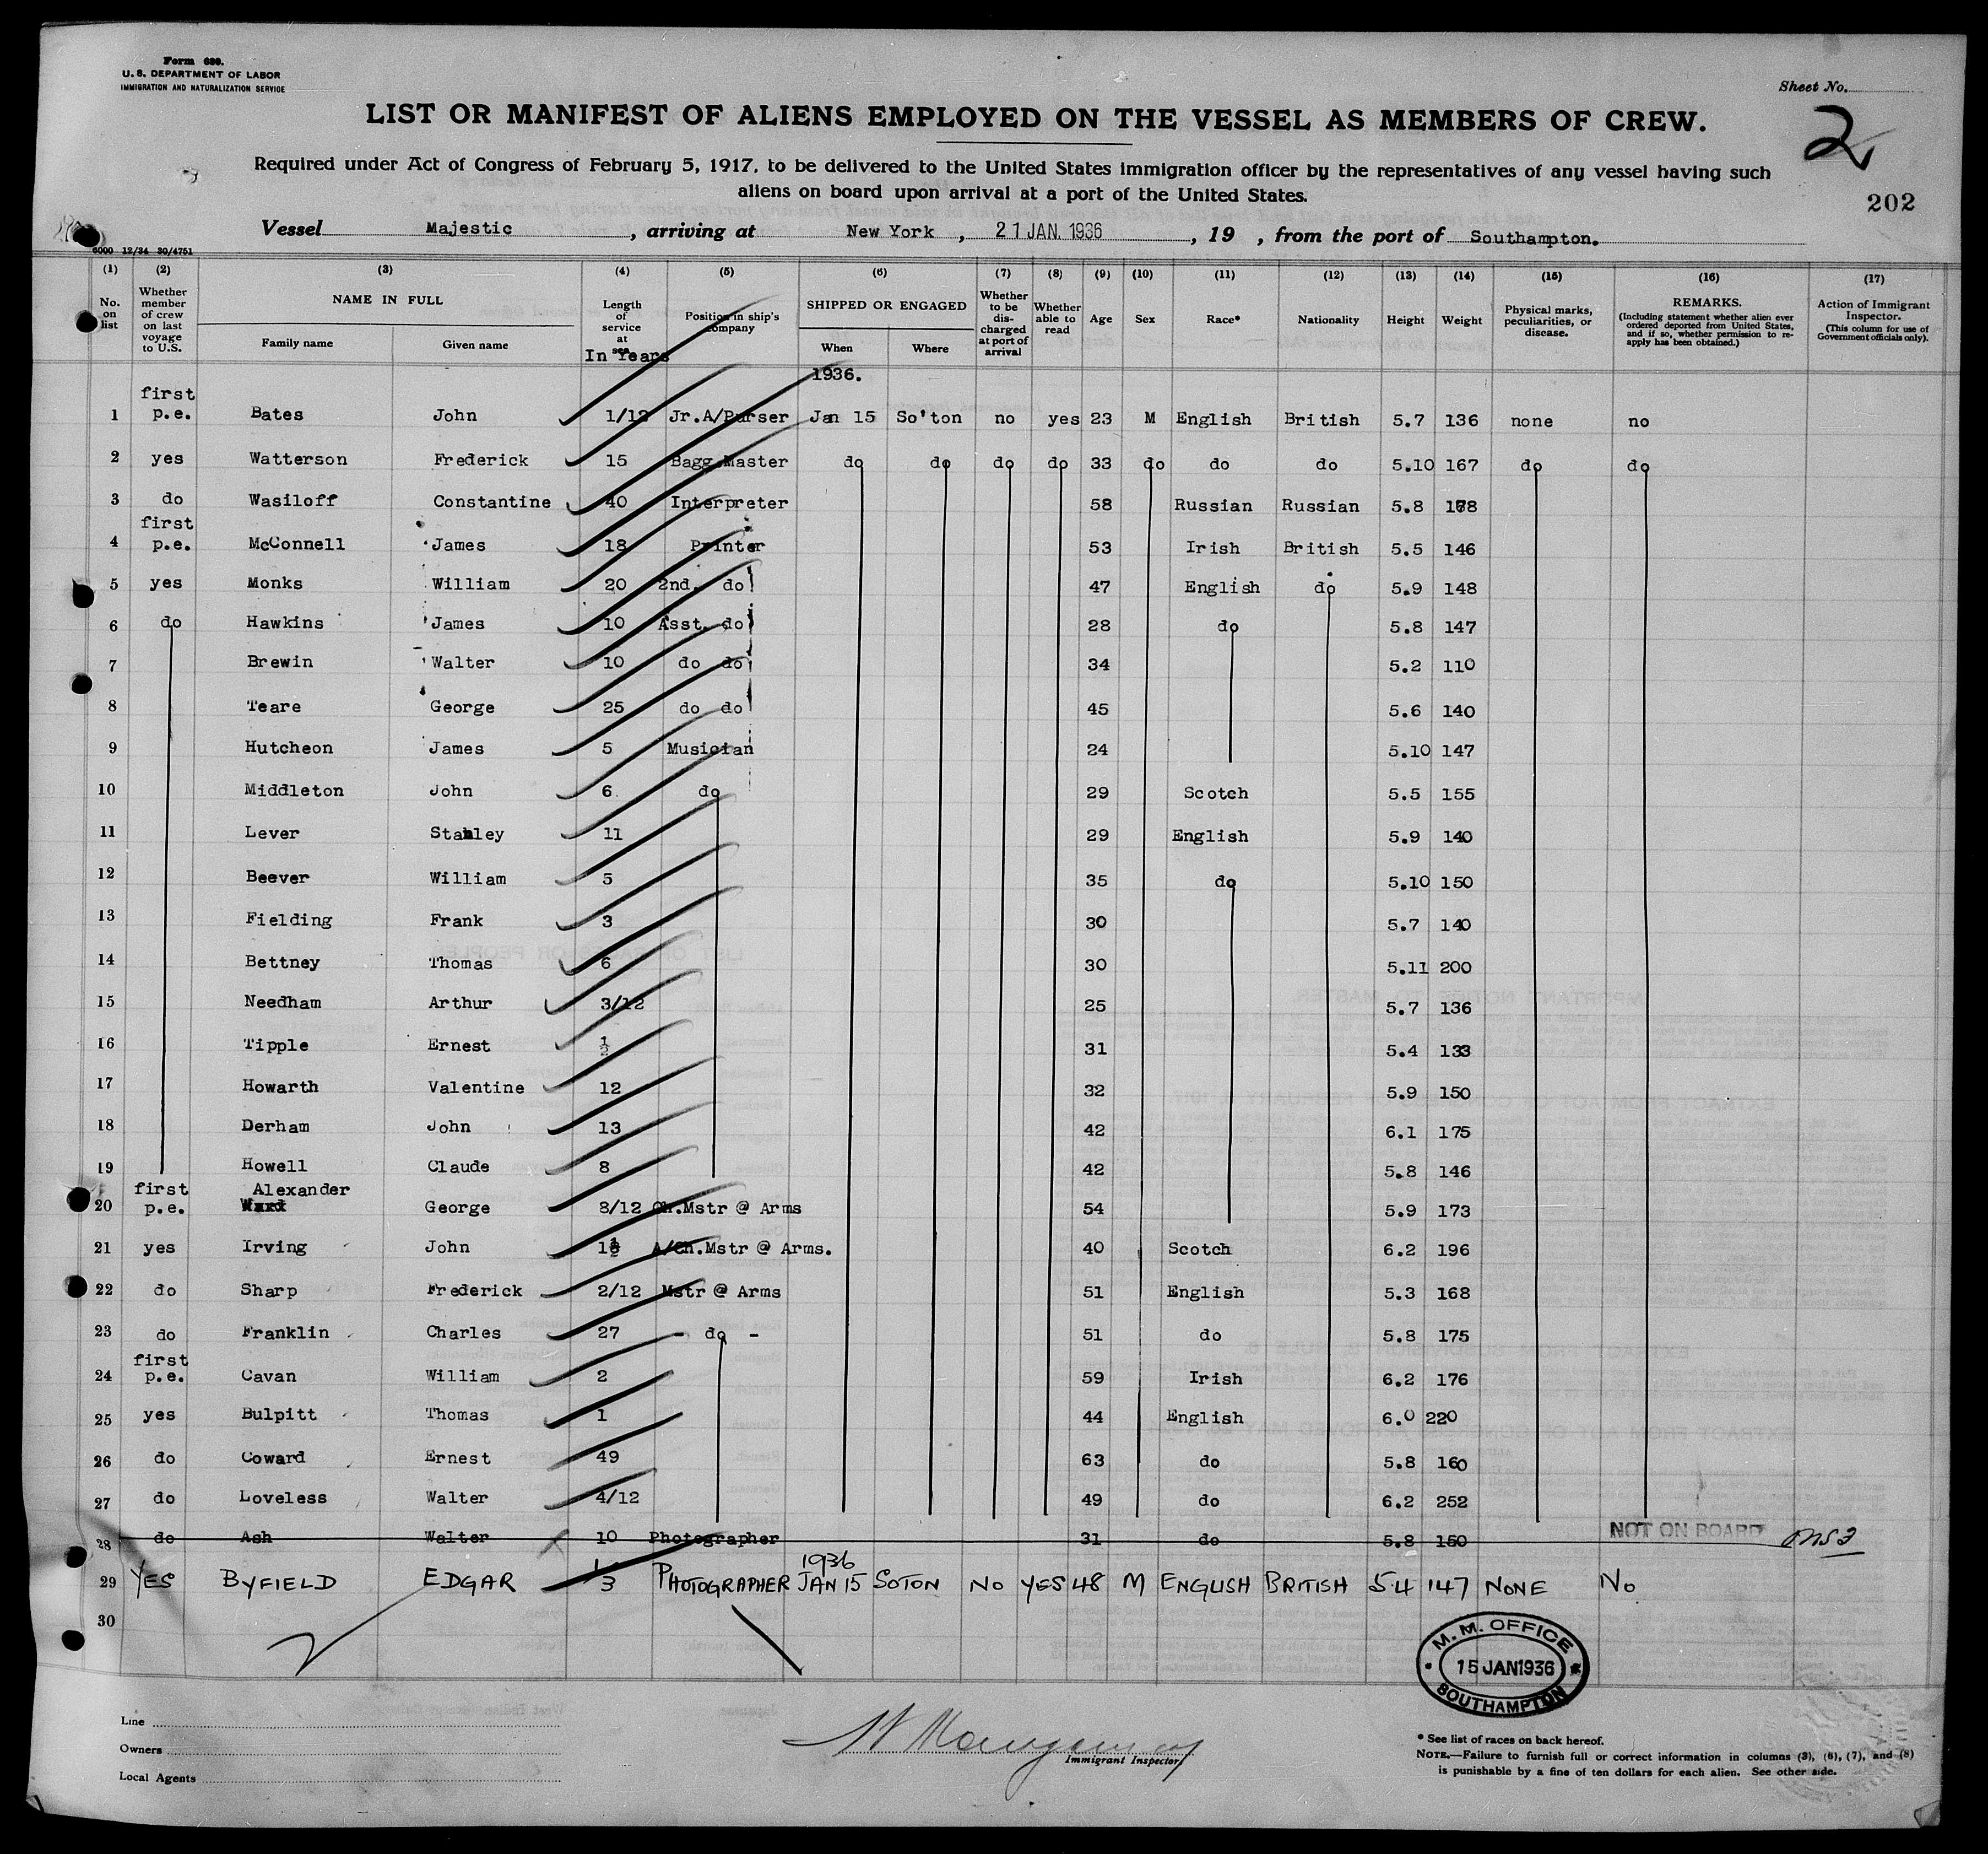 Form 680.
U. S. DEPARTMENT OF LABOR
IMMIGRATION AND NATURALIZATION SERVICE
Sheet No.
2
202
LIST OR MANIFEST OF ALIENS EMPLOYED ON THE VESSEL AS MEMBERS OF CREW.
Required under Act of Congress of February 5, 1917, to be delivered to the United States immigration officer by the representatives of any vessel having such
aliens on board upon arrival at a port of the United States.
Vessel Majestic, arriving at New York, 21 JAN. 1936, 19 , from the port of Southampton.
6000 12/34 30/4751
(1) (2) (3) (4) (5) (6) (7) (8) (9) (10) (11) (12) (13) (14) (15) (16) (17)
No. on list
Whether member of crew on last voyage to U.S.
NAME IN FULL
Family name Given name
Length of service at sea
In Years
Position in ship's company
SHIPPED OR ENGAGED
When Where
Whether to be discharged at port of arrival
Whether able to read
Age Sex Race* Nationality Height Weight
Physical marks, peculiarities, or disease.
REMARKS.
(Including statement whether alien ever ordered deported from United States, and if so, whether permission to reapply has been obtained.)
Action of Immigrant Inspector.
(This column for use of Government officials only).
1936.
1 first p.e. Bates John 1/12 Jr.A/Purser Jan 15 So'ton no yes 23 M English British 5.7 136 none no
2 yes Watterson Frederick 15 Bagg.Master do do do do 33 do do do 5.10 167 do do
3 do Wasiloff Constantine 40 Interpreter 58 Russian Russian 5.8
4 first p.e. McConnell James 18 Printer 53 Irish British 5.5 146
5 yes Monks William 20 2nd. do 47 English do 5.9 148
6 do Hawkins James 10 Asst. do 28 do 5.8 147
7 Brewin Walter 10 do do 34 5.2 110
8 Teare George 25 do do 45 5.6 140
9 Hutcheon James 5 Musician 24 5.10 147
10 Middleton John 6 do 29 Scotch 5.5 155
11 Lever Stanley 11 29 English 5.9 140
12 Beever William 5 35 do 5.10 150
13 Fielding Frank 3 30 5.7 140
14 Bettney Thomas 6 30 5.11 200
15 Needham Arthur 3/12 25 5.7 136
16 Tipple Ernest ½ 31 5.4 133
17 Howarth Valentine 12 32 5.9 150
18 Derham John 13 42 6.1 175
19 Howell Claude 8 42 5.8 146
20 first p.e. Alexander Ward George 8/12 Ch.Mstr @ Arms 54 5.9 173
21 yes Irving John 1½ A/Ch.Mstr @ Arms. 40 Scotch 6.2 196
22 do Sharp Frederick 2/12 Mstr @ Arms 51 English 5.3 168
23 do Franklin Charles 27 - do - 51 do 5.8 175
24 first p.e. Cavan William 2 59 Irish 6.2 176
25 yes Bulpitt Thomas 1 44 English 6.0 220
26 do Coward Ernest 49 63 do 5.8 160
27 do Loveless Walter 4/12 49 do 6.2 252
28 do Ash Walter 10 Photographer 31 do 5.8 150 NOT ON BOARD
1936
29 YES BYFIELD EDGAR 3 PHOTOGRAPHER JAN 15 SOTON NO YES 48 M ENGLISH BRITISH 5.4 147 NONE No
30
M. M. OFFICE
15 JAN 1936
SOUTHAMPTON
Line
Owners
Local Agents
Immigrant Inspector
* See list of races on back hereof.
NOTE.—Failure to furnish full or correct information in columns (3), (6), (7), and (8)
is punishable by a fine of ten dollars for each alien. See other side.